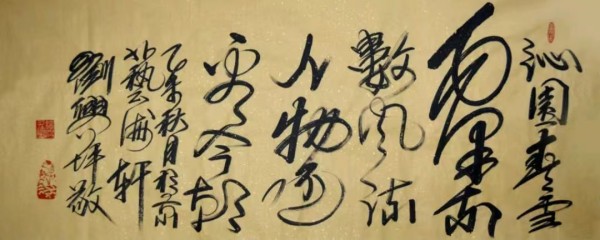 沁園春雪
俱往矣
數風流
人物還
看今朝
乙未秋月於
藝海軒
劉興坪敬